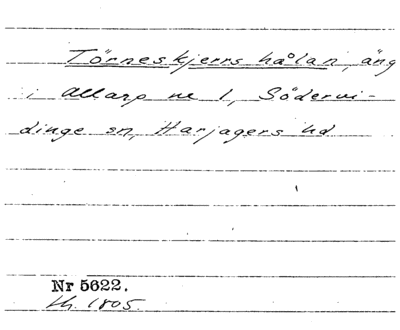 Törneskjerrs hålan, äng
i Allarp nr 1, Södervi-
dinge sn, Harjagers hd
Nr 5622.
Lh. 1805.